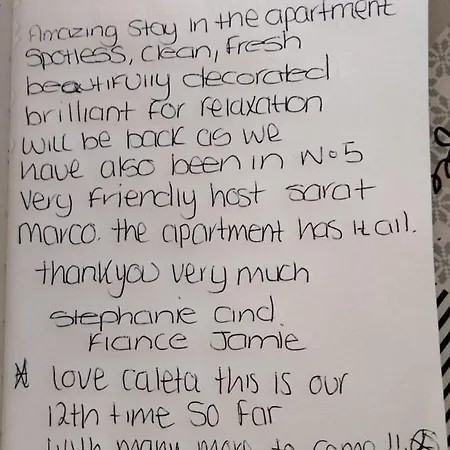 Amazing stay in the apartment
spotless, clean, fresh
beautifully decorated
brilliant for relaxation
will be back as we
have also been in No5
very friendly host sarat
marco. the apartment has it all.
thankyou very much
Stephanie and
Fiance Jamie
love caleta this is our
12th time so far
with many more to come!!